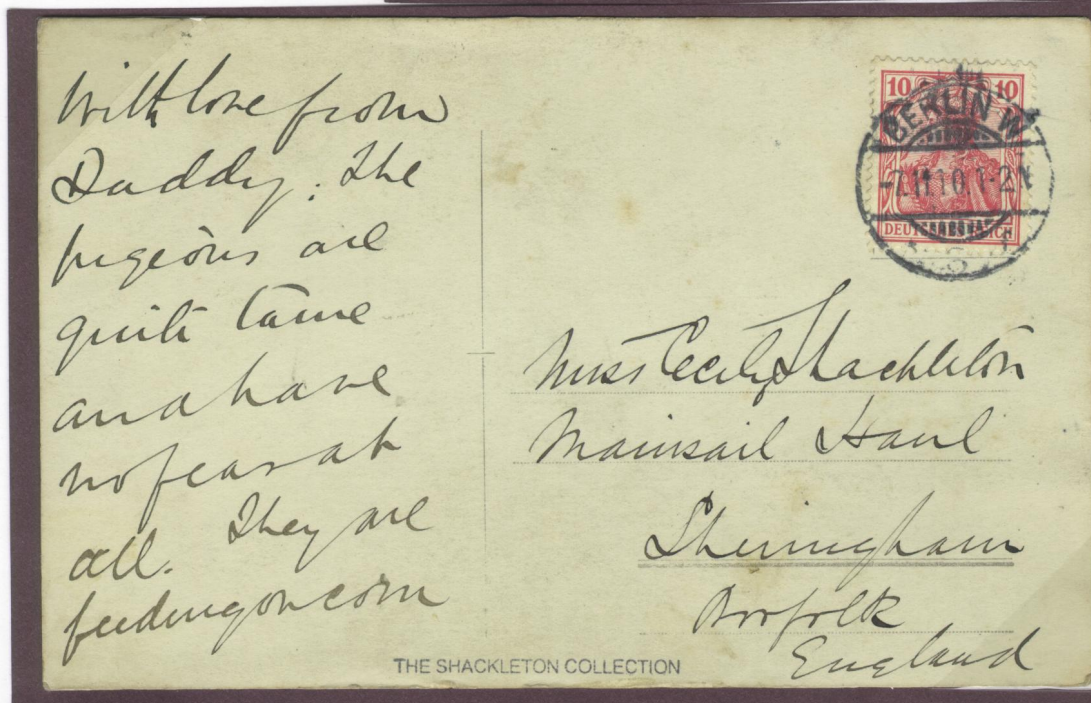 With love from
Daddy. The
pigeons are
quite tame
and have
no fear at
all. They are
feeding on corn
10 10
BERLIN W
-7.11.10.1-2N
DEUTSCHES REICH
Miss Cecily Shackleton
Mainsail Haul
Sheringham
Norfolk
England
THE SHACKLETON COLLECTION